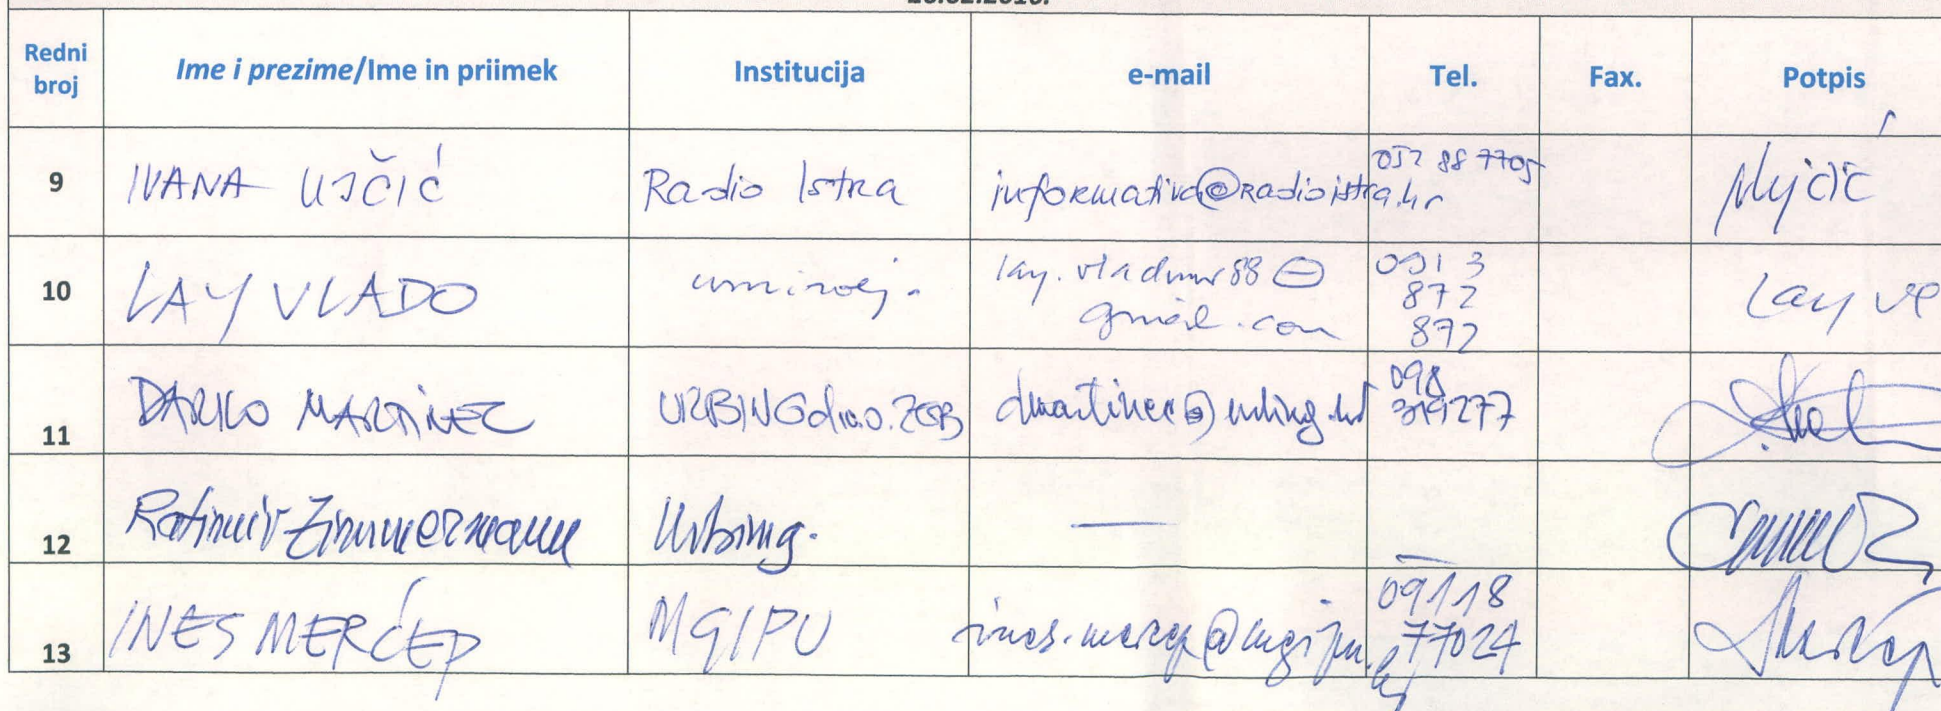 Redni broj Ime i prezime/Ime in priimek Institucija e-mail Tel. Fax. Potpis
9 IVANA UJČIĆ Radio Istra informativa@radioistra.hr 052 88 7705 Ujčić
10 LAY VLADO umirovlj. lay.vladimir88@ 091 3
gmail.com 872
872
11 DARKO MARTINEC URBING d.o.o. ZGB dmartinec@urbing.hr 098
319277
12 Ratimir Zimmermann Urbing. —
13 INES MERĆEP MGIPU ines.mercep@mgipu.hr 09118
77024